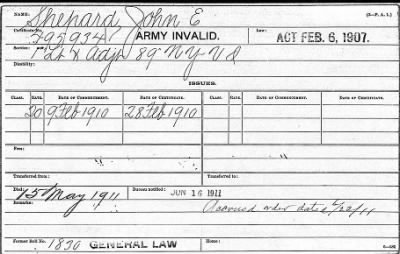 Name: Shepard John E (3-P. A. I.)
Certificate No.: 595934 ARMY INVALID. Law: ACT FEB. 6, 1907.
Service: 1 Lt & Adjt 89" N Y V I
Disability:
ISSUES.
CLASS. RATE. DATE OF COMMENCEMENT. DATE OF CERTIFICATE. CLASS. RATE. DATE OF COMMENCEMENT. DATE OF CERTIFICATE.
20 9 Feb 1910 28 Feb 1910
Fee:
Transferred from: Transferred to:
Died: 15 May 1911 Bureau notified: JUN 16 1911
Remarks: Accrued order dated
Former Roll No. 1830 GENERAL LAW Home: